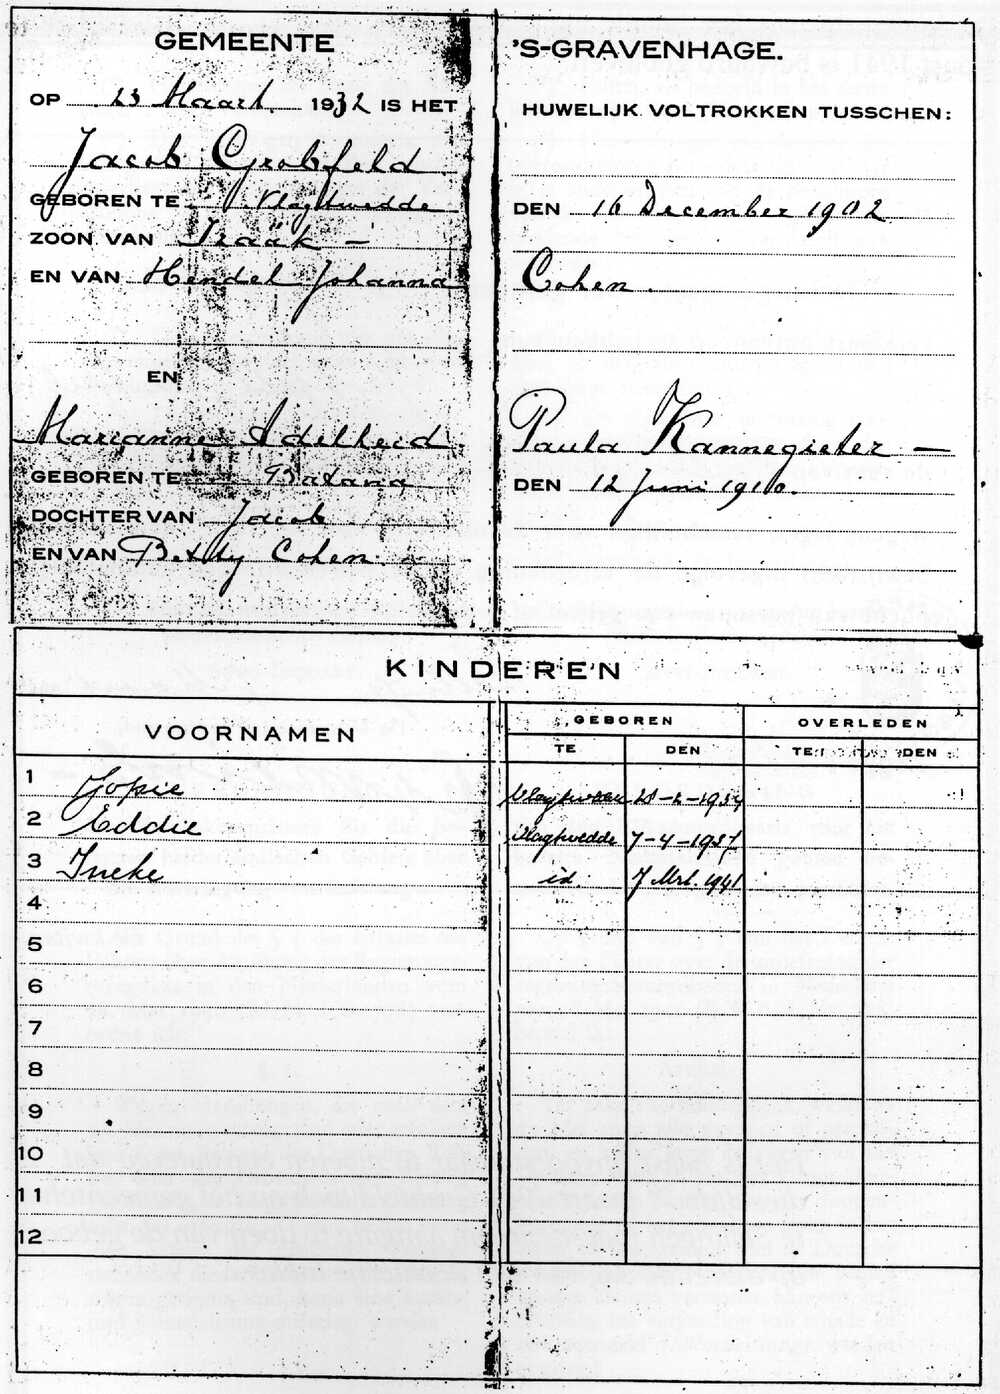 GEMEENTE 'S-GRAVENHAGE.
OP 23 Maart 1932 IS HET HUWELIJK VOLTROKKEN TUSSCHEN:
Jacob Grobfeld
GEBOREN TE Vlagtwedde DEN 16 December 1902
ZOON VAN Izaäk —
EN VAN Hendel Johanna Cohen.
EN
Marianne Adelheid Paula Kannegieter —
GEBOREN TE Batavia DEN 12 Juni 1910.
DOCHTER VAN Jacob
EN VAN Betsy Cohen.
KINDEREN
VOORNAMEN GEBOREN OVERLEDEN
TE DEN TE DEN
1 Jopie Vlagtwedde 1934
2 Eddie Vlagtwedde 7-4-1937
3 Ineke id. 7 Mrt. 1941
4
5
6
7
8
9
10
11
12